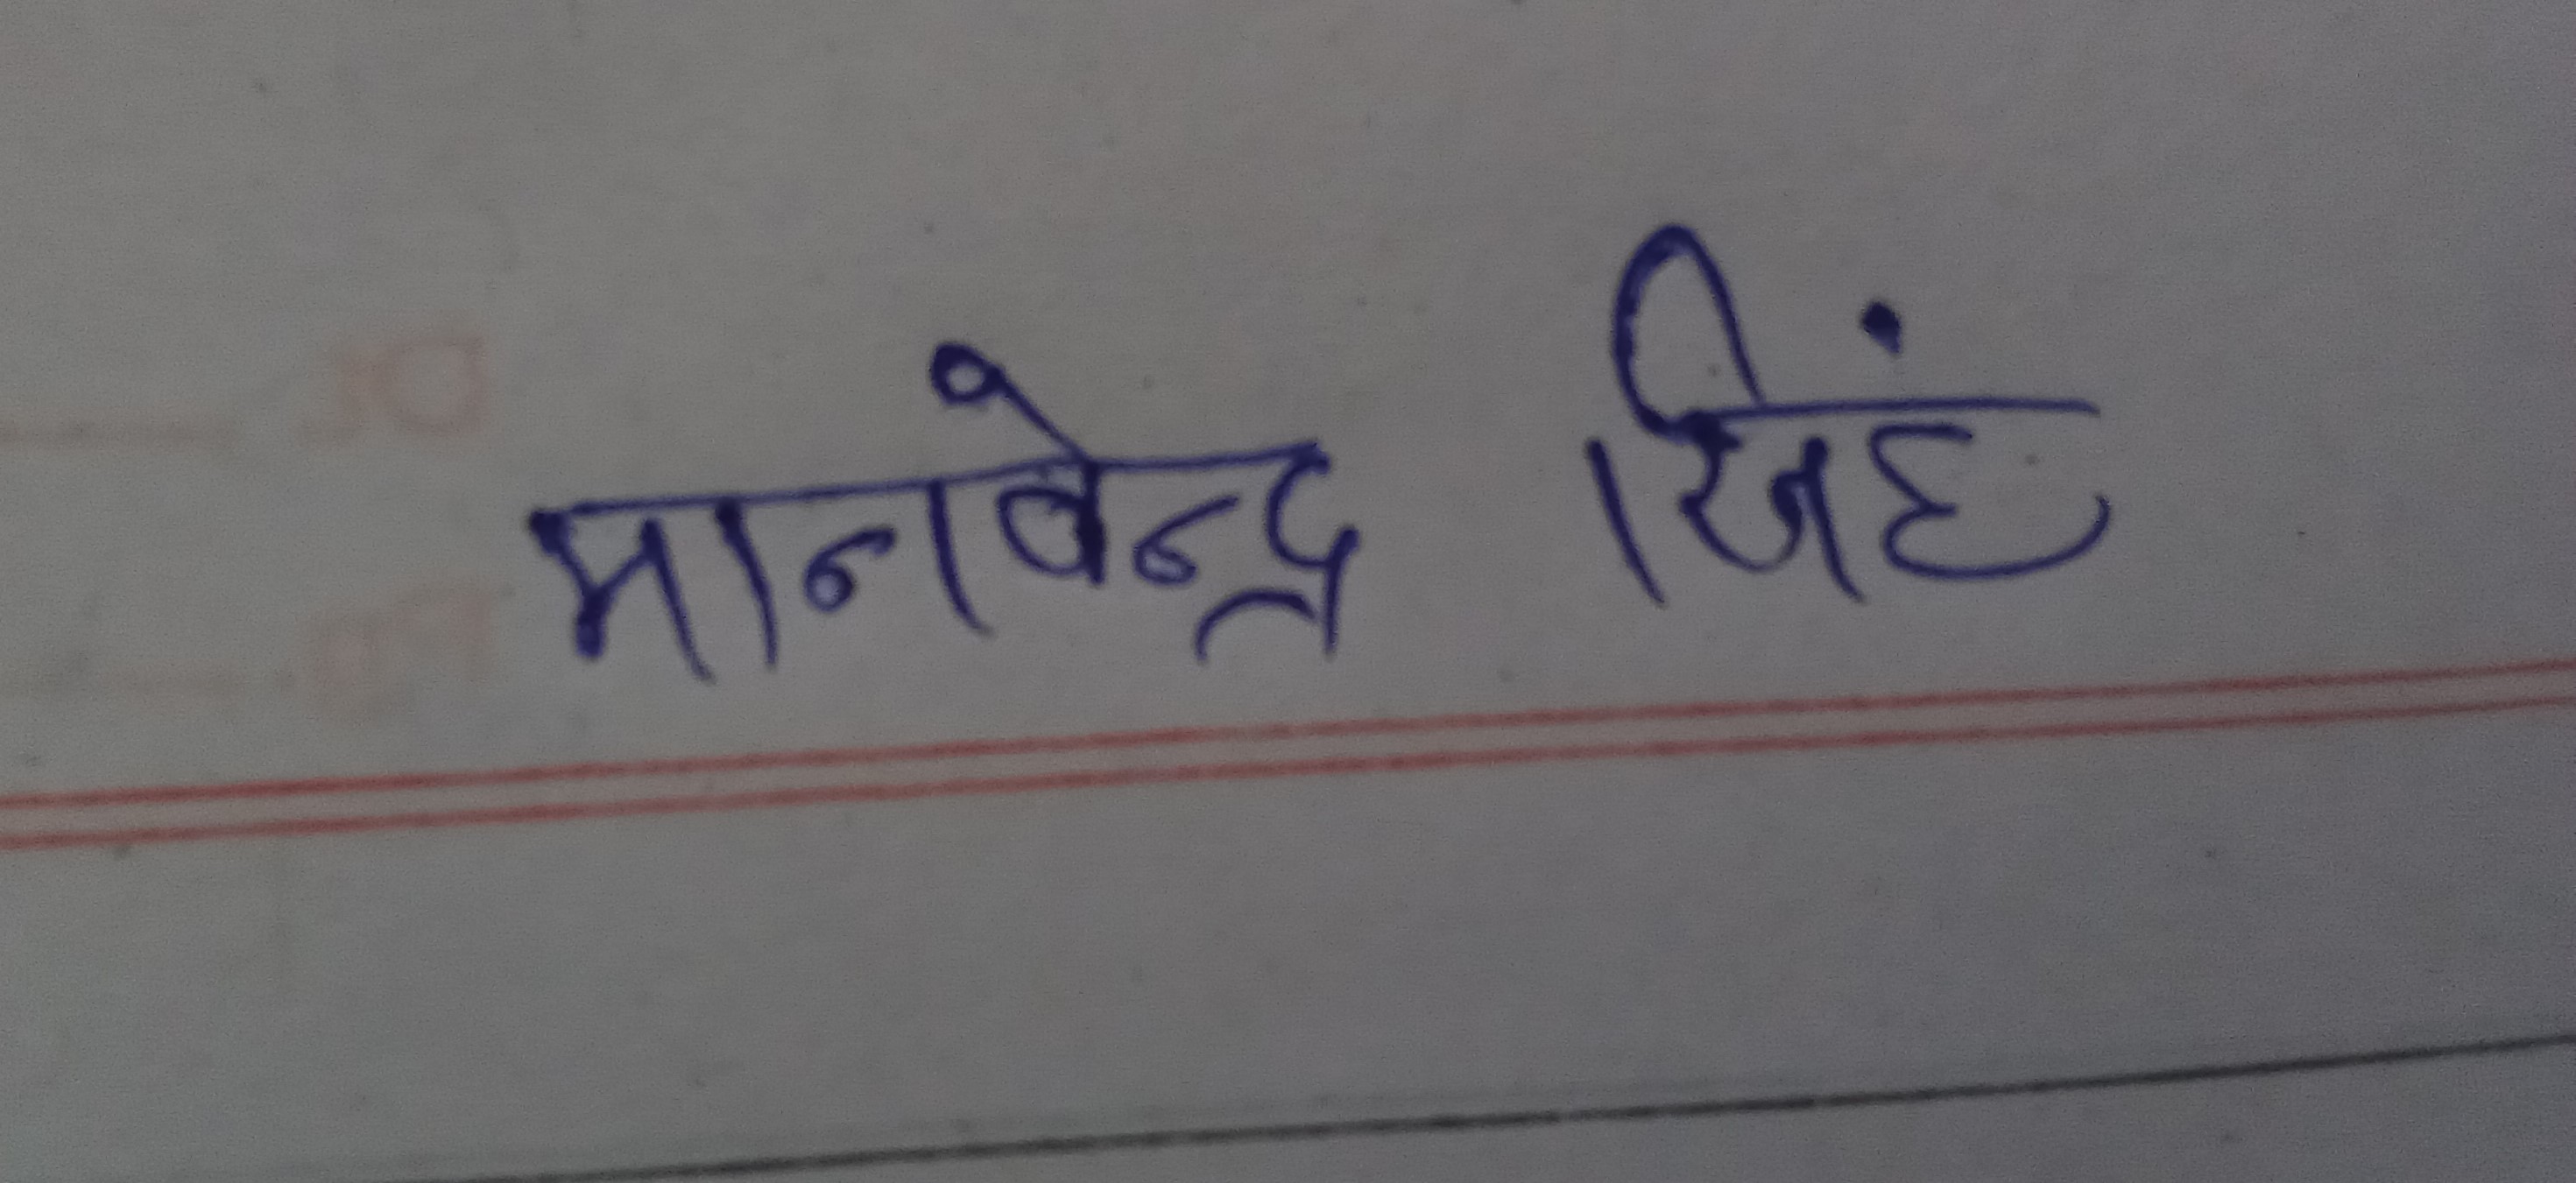 मानवेन्द्र सिंह